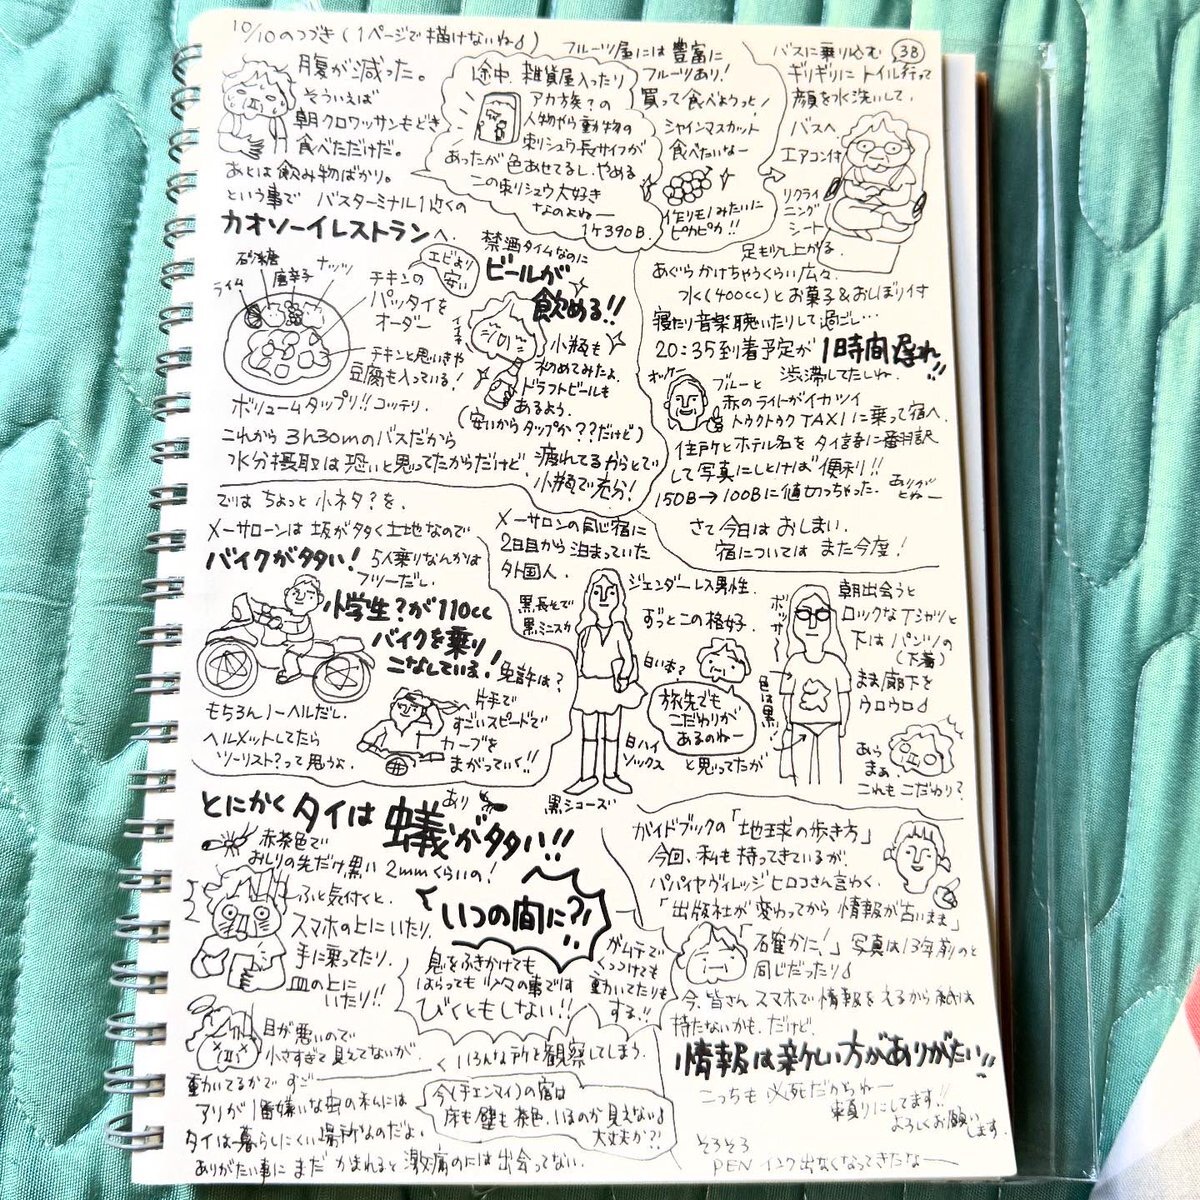 10/10のつづき(1ページで描けないね♪)
38
腹が減った。
そういえば
朝クロワッサンもどき
食べただけだ。
あとは飲み物ばかり。
という事で バスターミナル1近くの
カオソーイレストランへ。
途中、雑貨屋入ったり
アカ族?の
人物やら動物の
刺シュウ長サイフが
あったが色あせてるし、やめる
この刺リシュウ大好き
なのよねー
1ケ390B
フルーツ屋には豊富に
フルーツあり!
買って食べようっと!
シャインマスカット
食べたいなー
作リモノみたいに
ピカピカ!!
バスに乗り込む
ギリギリにトイレ行って
顔を水洗いして、
バスへ
エアコン付
リクライ
ニング
シート
足も少し上がる
あぐらかけちゃうくらい広々
水(400cc)とお菓子&おしぼり付
寝たり音楽聴いたりして過ごし…
20:35到着予定が1時間遅れ!!
渋滞してたしね。
砂糖
唐辛子
ナッツ
ライム
チキンの
パッタイを
オーダー
エビより
安い
チキンと思いきや
豆腐も入っている!
ボリュームタップリ!!コッテリ。
これから3h30mのバスだから
水分摂取は恐いと思ってたからだけど
禁酒タイムなのに
ビールが
飲める!!
小瓶も
初めてみたよ
ドラフトビールも
あるよう。
(安いからタップか??だけど)
疲れてるからとで
小瓶で充分!
オッケー
ブルーと
赤のライトがイカツイ
トゥクトゥクTAXIに乗って宿へ
住戸所とホテル名をタイ語に翻訳
して写真にしとけば便利!!
150B→100Bに値切っちゃった.
ありが
とねー
さて今日はおしまい.
宿についてはまた今度!
ではちょっと小ネタ?を.
メーサローンは坂が多く土地なので
バイクが多い!
5人乗りなんかは
フツーだし.
小学生?が110cc
バイクを乗り
こなしている!
免許は?
もちろんノーヘルだし.
ヘルメットしてたら
ツーリスト?って思うよ.
片手で
すごいスピードで
カーブを
まがっていく!!
メーサロンの同じ宿に
2日目から泊まっていた
外国人.
ジェンダーレス男性.
黒長そで
黒ミニスカ
ずっとこの格好.
白い本?
旅先でも
こだわりが
あるのねー
と思ってたが
白ハイ
ソックス
黒シューズ
ボッサー
色は黒!
朝出会うと
ロックなTシャツと
下はパンツの
(下着)
まま廊下を
ウロウロ♪
あら
まぁ
これもこだわり?
とにかくタイは蟻が多い!!
あり
赤茶色で
おしりの先だけ黒い2mmくらいの!
ふと気付くと
スマホの上にいたり.
手に乗ってたり.
皿の上に
いたり!!
いつの間に?!
息をふきかけても
はらっても少々の事です
びくともしない!!
ガムテで
くっつけても
動いてたりも
する!!
目が悪いので
小さすぎて見えてないが.
いろんな所と観察してしまう.
動いてるかですご一
アリが1番嫌いな虫の私には
タイは暮らしにくい場所なのだよ.
ありがたい事にまだかまれると激痛のには出会ってない.
今(チェンマイ)の宿は
床も壁も茶色.いるのか見えない♪
大丈夫か?!
ガイドブックの「地球の歩き方」
今回、私も持ってきているが.
パパイヤヴィレッジヒロコさん言わく.
「出版社が変わってから情報が古いまま」
「確かに!」写真は13年前のと
同じだったり♪
今、皆さんスマホで情報をえるから紙は
持たないかも.だけど.
情報は新しい方がありがたい!!
こっちも必死だからねー
頼りにしてます!!
よろしくお願いします.
そろそろ
PENインク出なくなってきたなー